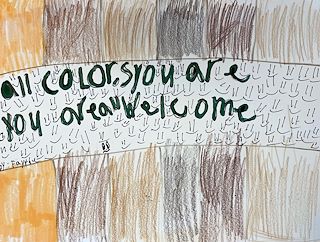 all colors you are
you are all welcome